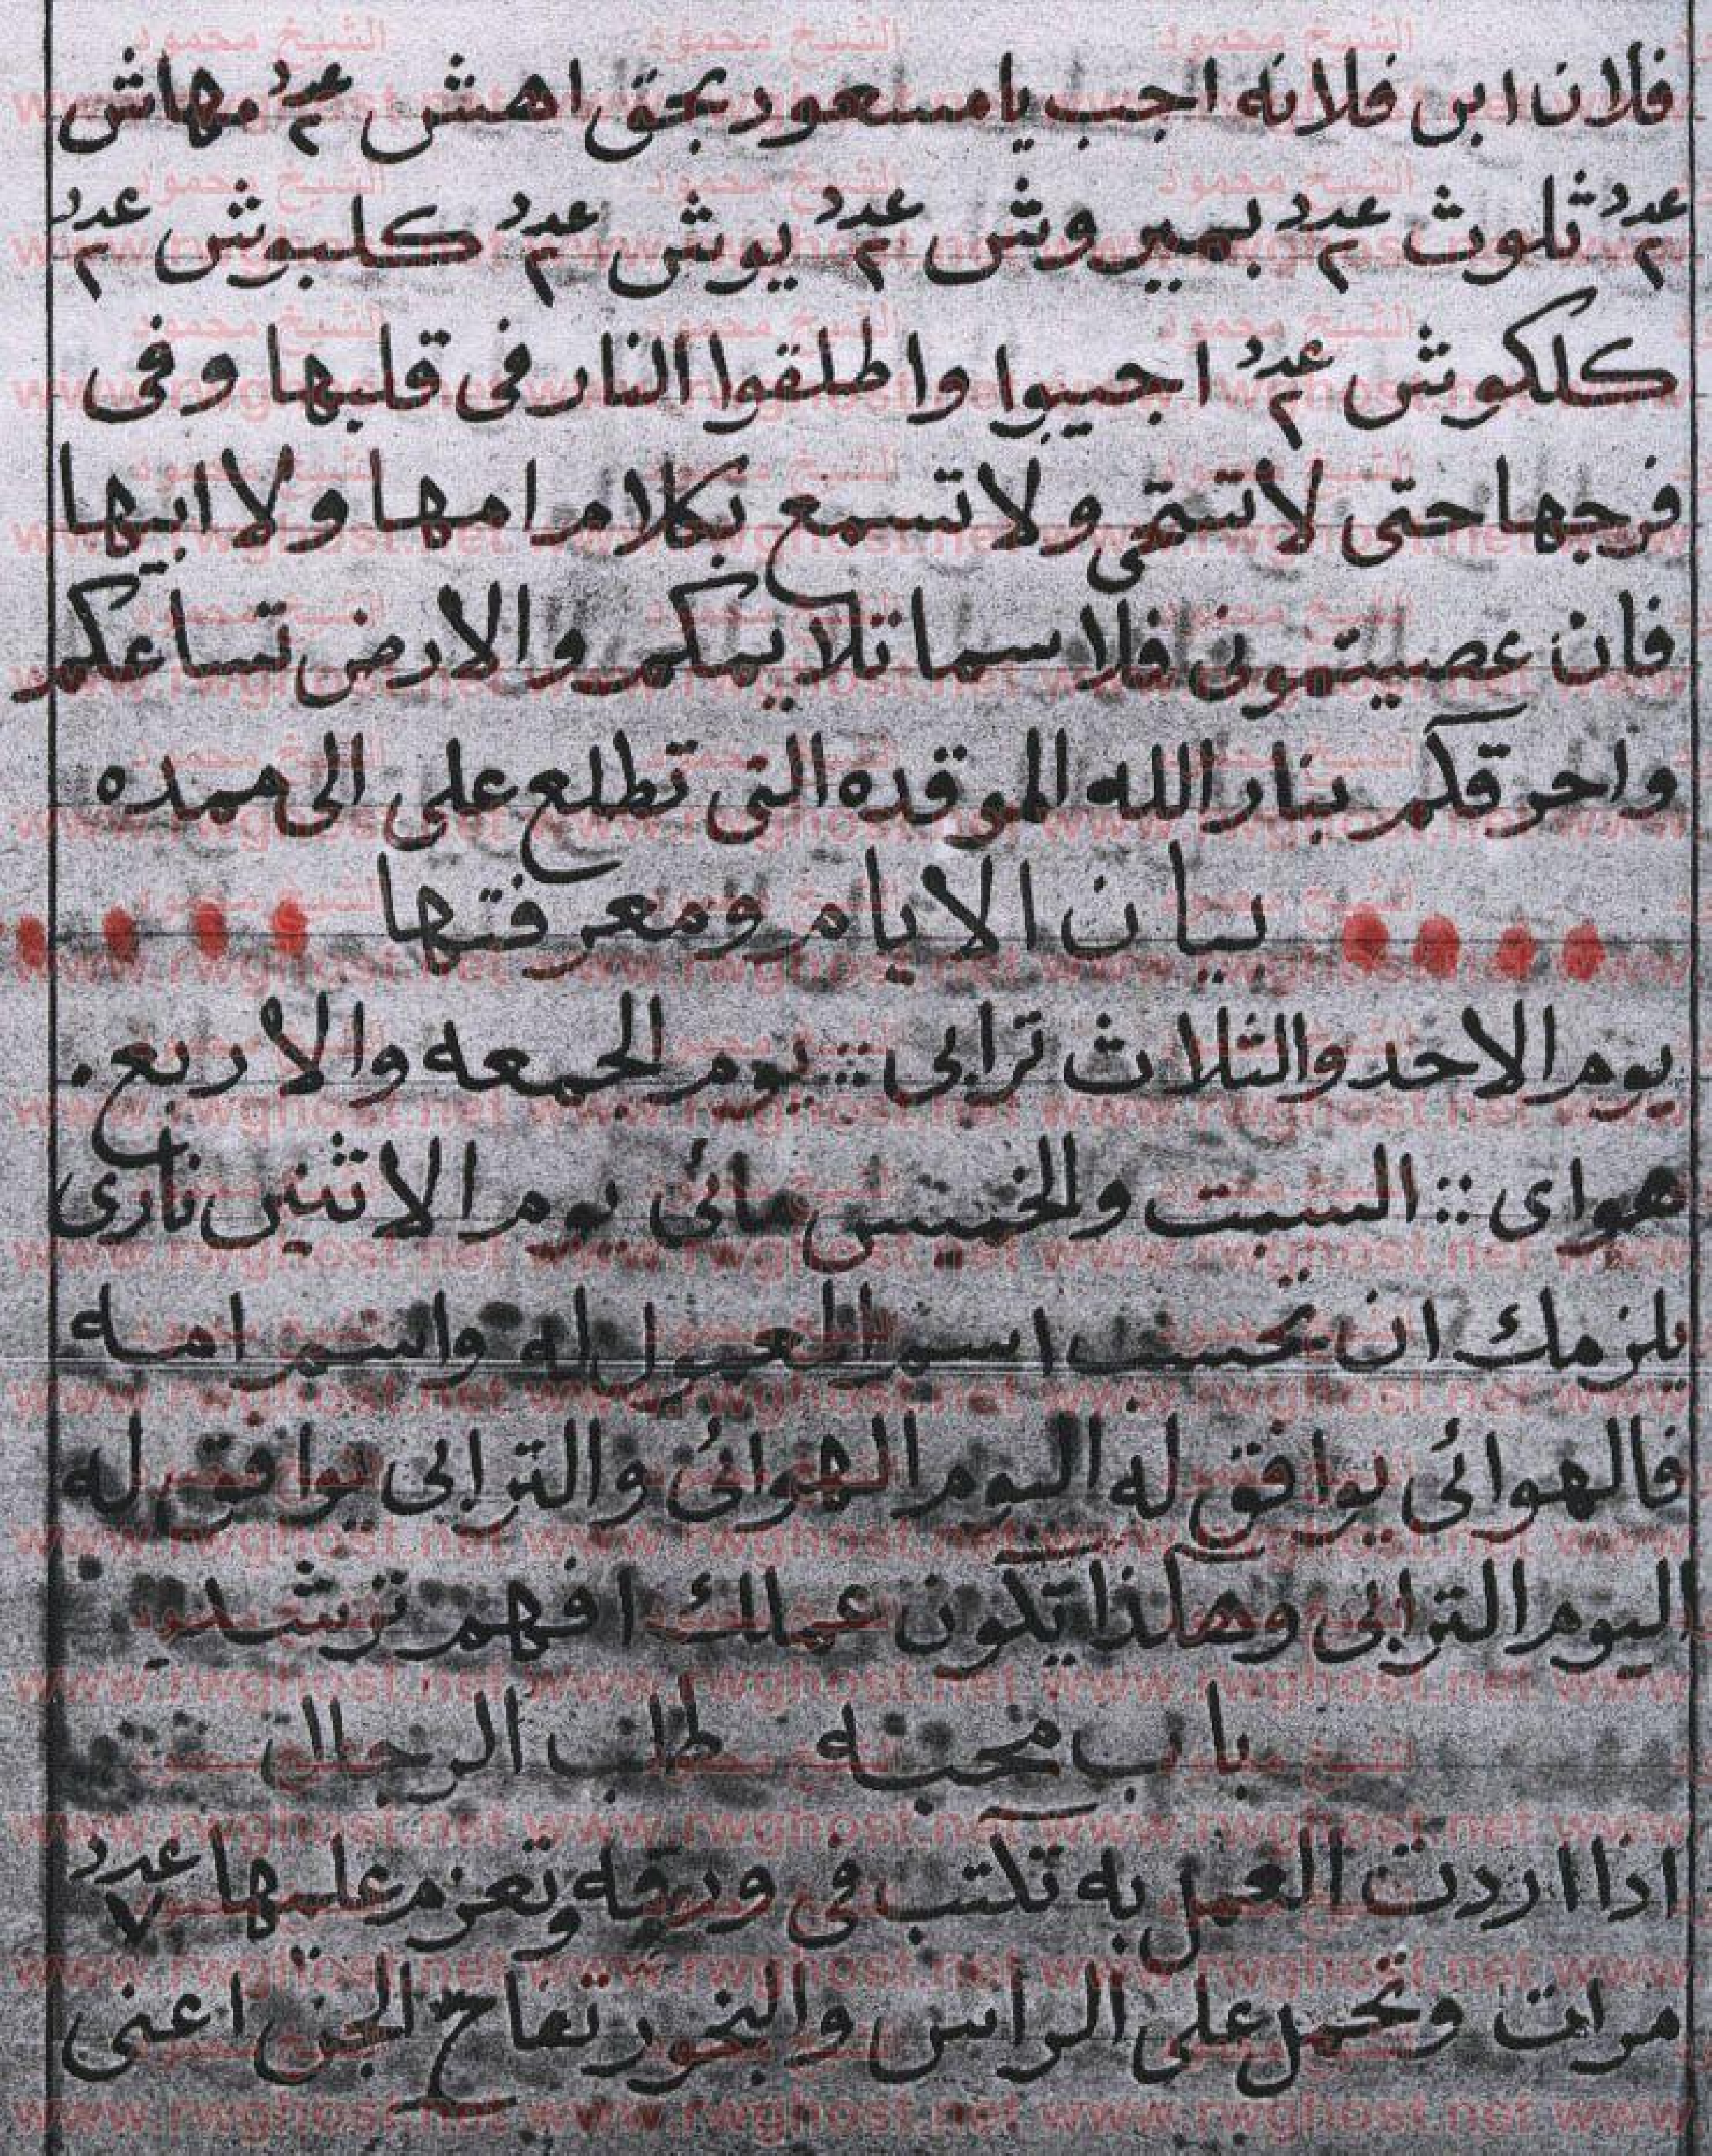 فلان ابن فلانه اجب يا مسعود بحق اهش عدد ٢ مهاش
عدد ٢ ثلوث عدد ٢ بميروش عدد ٢ يوش عدد ٢ كلبوش عدد ٢
كلكوش عدد ٢ اجيبوا واطلقوا النار فى قلبها وفى
فرجها حتى لا تستحى ولا تسمع بكلام امها ولا ابيها
فان عصيتمونى فلا سما تلا يمكم والارض تساعكم
واحرقكم بنار الله الموقده التى تطلع على الى ممده
بيان الايام ومعرفتها
يوم الاحد والثلاث ترابى :: يوم الجمعه والاربع .
هواى :: السبت والخميس مائى يوم الاثنين نارى
يلزمك ان تحسب اسم المعمول له واسم امه
فالهوائى يوافق له اليوم الهوائى والترابى يوافق له
اليوم الترابى وهكذا يكون عملك افهم ترشد
باب محبه طلب الرجال
اذا اردت العمل به تكتب فى ورقه وتعزم عليها عدد ٧
مرات وتحمل على الراس والبخور تفاح الجن اعنى
الشيخ محمود
www.rwghost.net